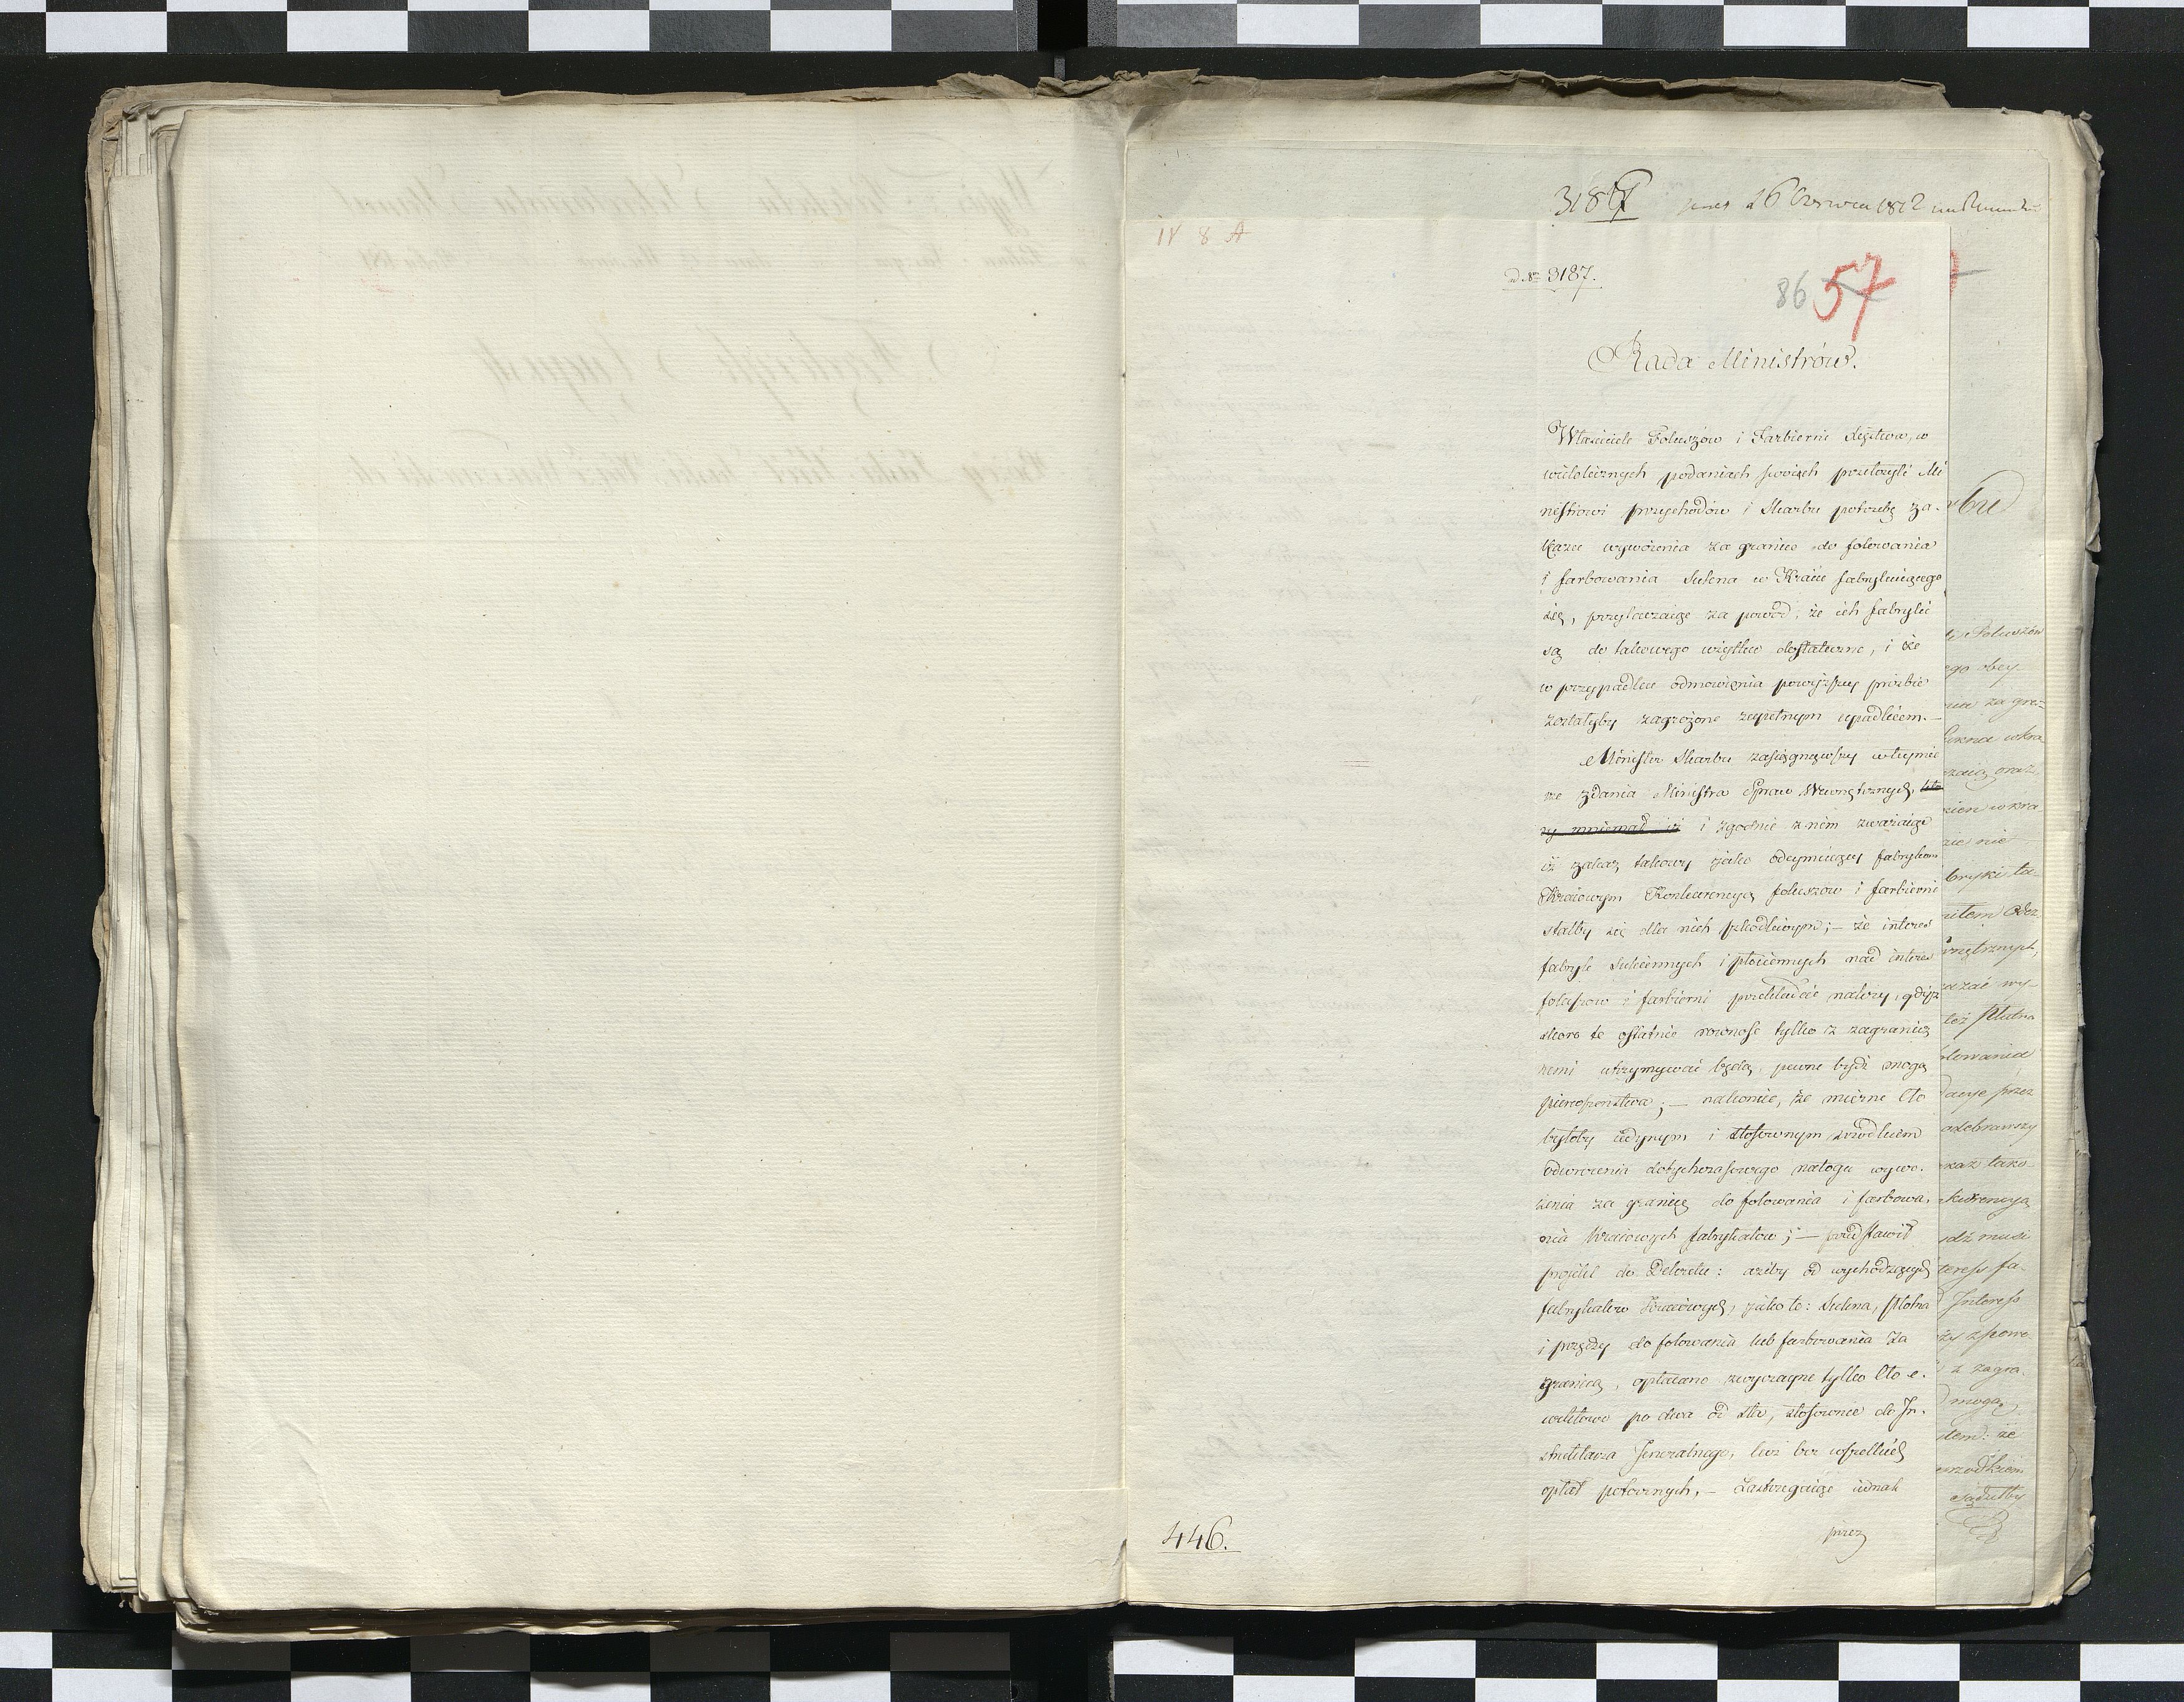 3187 26 Czerwca 1812
IV 8 A
d. N= 3187.
86 57
Rada Ministrów.
Właściciele Foluszów i Farbierni Xięstwa, w
wielolicznych podaniach swoich przełożyli Mi
nistrowi przychodów i Skarbu potrzebę za-
kazu wywożenia za granicę do folowania
i farbowania Sukna w Kraiu fabrykuiącego
się, przytaczaiąc za powód, że ich fabryki
są do takowego użytku dostateczne, i że
w przypadku odmowienia powyższey prozbie
zostałyby zagrożone zupełnym upadkiem.—
Minister Skarbu zasięgnąwszy w tuymie
rze zdania Ministra Spraw Wewnętrznych, któ
ry mniemał iż i zgodnie z nim zważaiąc
iż zakaz takowy jako odeymuiący fabrykom
Kraiowym Konkurencyą foluszow i farbierni
stałby się dla nich szkodliwym; — że interes
fabryk Sukiennych i płóciennych nad interes
foluszow i farbierni przekładać należy, gdyż
skoro te ostatnie rowność tylko z zagranicz
nemi utrzymywać będą, pewne bydź mogą
pierwszeństwa; — nakoniec, że mierne Cło
byłoby iedynym i stosownym srzodkiem
odwrocenia dotychczasowego nałogu wywo-
żenia za granicę do folowania i farbowa,
nia Kraiowych fabrykatow; — przedstawił
projekt do Dekretu: ażeby od wychodzących
fabrykatow Kraiowych, jako to: Sukna, płotna
i przędzy do folowania lub farbowania za
granicę, opłacano zwyczayne tylko Cło e-
wiktowe po dwa od sta, stosownie do In-
struktarza Jeneralnego, lecz bez wszelkich
opłat pobocznych, — Zastrzegaiąc iednak
przez
446.
rbu
Foluszów
ego obey
nia za gra-
Sukna w kra
oraz
w kra
nie
bryki ta-
wnętrznych,
azać wy-
też Płutna
lowania
przez
odebrawszy
kaz tako-
kurencyą
ydź musi
teress fa-
Interess
z zagra-
mogą,
że
srzodkiem